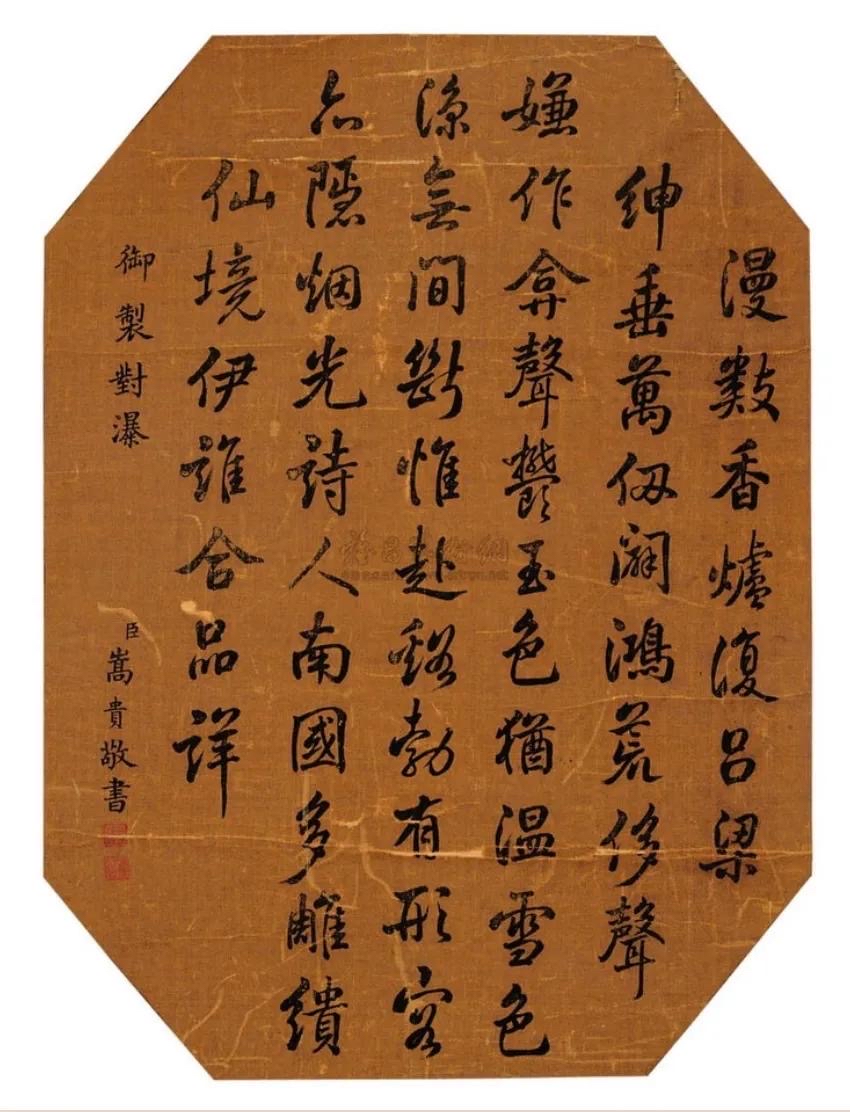 漫數香爐復呂梁
紳垂萬仭闢鴻荒侈聲
嫌作弇聲鬱玉色猶温雪色
涼無間斷惟赴谿勃有形容
亦隱烟光詩人南國多雕繢
仙境伊誰合品詳
御製對瀑
臣嵩貴敬書